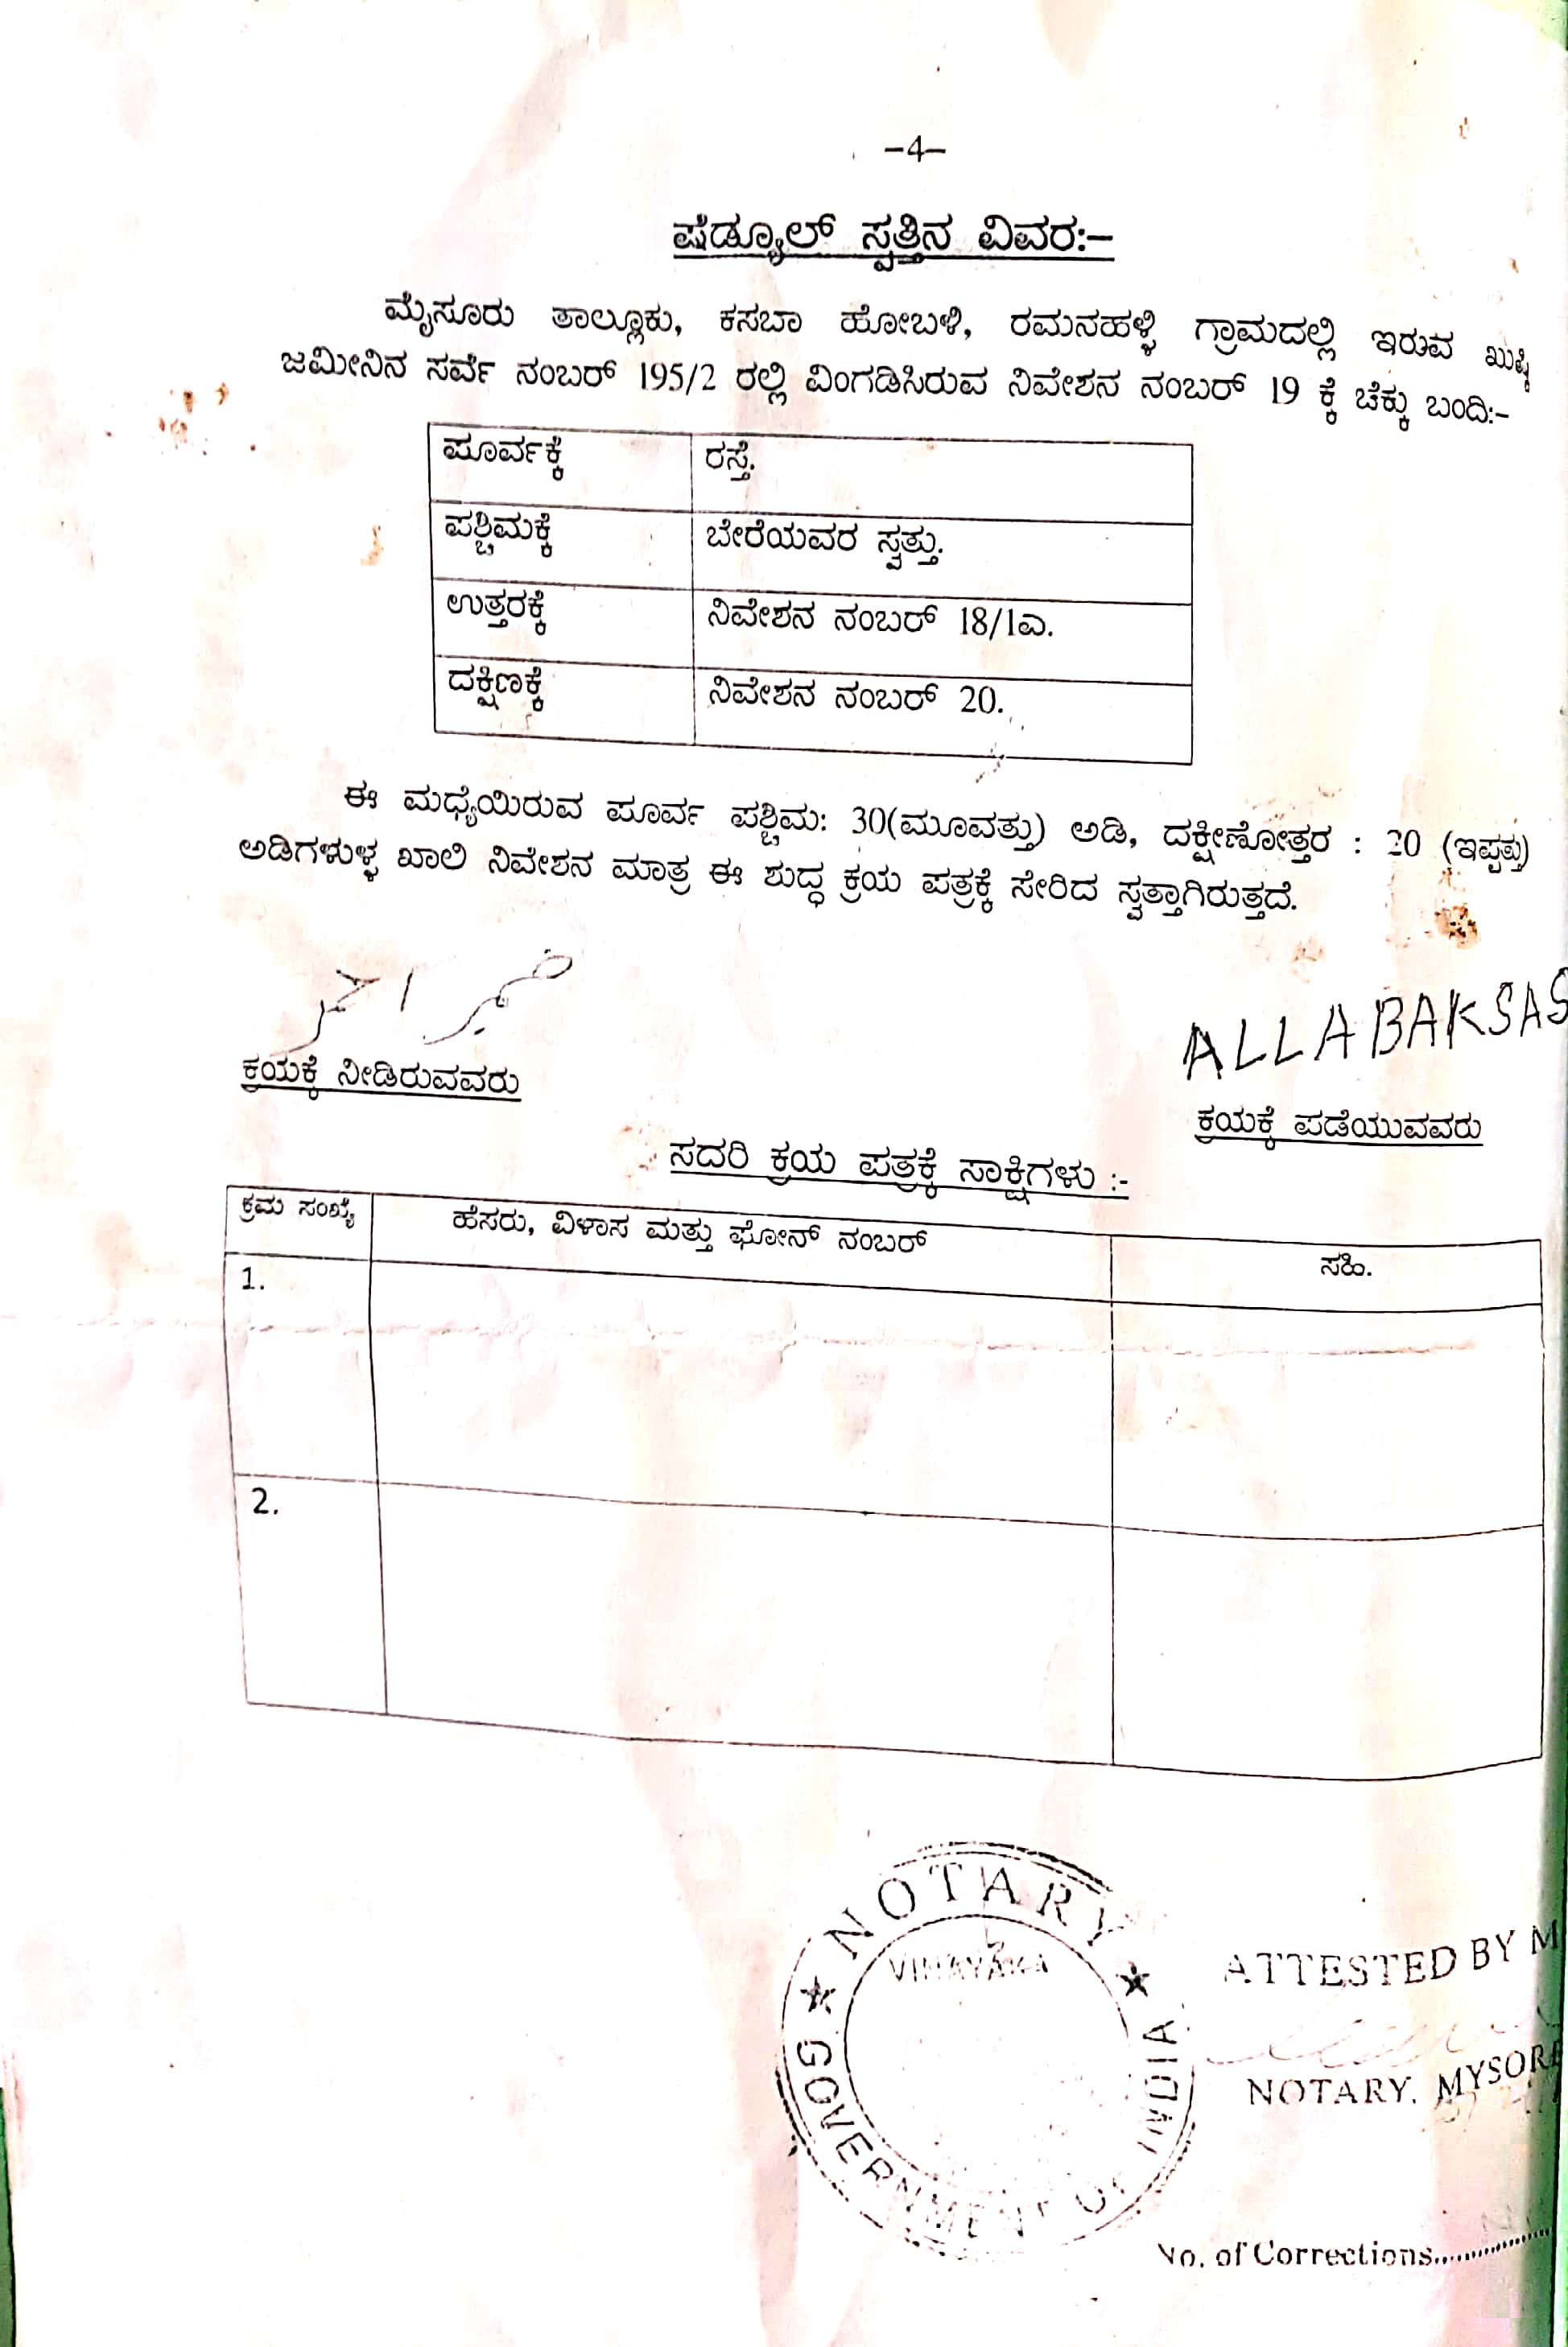 –4–
ಷೆಡ್ಯೂಲ್ ಸ್ವತ್ತಿನ ವಿವರ:–
ಮೈಸೂರು ತಾಲ್ಲೂಕು, ಕಸಬಾ ಹೋಬಳಿ, ರಮನಹಳ್ಳಿ ಗ್ರಾಮದಲ್ಲಿ ಇರುವ ಖುಷ್ಕಿ
ಜಮೀನಿನ ಸರ್ವೆ ನಂಬರ್ 195/2 ರಲ್ಲಿ ವಿಂಗಡಿಸಿರುವ ನಿವೇಶನ ನಂಬರ್ 19 ಕ್ಕೆ ಚೆಕ್ಕು ಬಂದಿ:–
ಪೂರ್ವಕ್ಕೆ ರಸ್ತೆ.
ಪಶ್ಚಿಮಕ್ಕೆ ಬೇರೆಯವರ ಸ್ವತ್ತು.
ಉತ್ತರಕ್ಕೆ ನಿವೇಶನ ನಂಬರ್ 18/1ಎ.
ದಕ್ಷಿಣಕ್ಕೆ ನಿವೇಶನ ನಂಬರ್ 20.
ಈ ಮಧ್ಯೆಯಿರುವ ಪೂರ್ವ ಪಶ್ಚಿಮ: 30(ಮೂವತ್ತು) ಅಡಿ, ದಕ್ಷೀಣೋತ್ತರ : 20 (ಇಪ್ಪತ್ತು)
ಅಡಿಗಳುಳ್ಳ ಖಾಲಿ ನಿವೇಶನ ಮಾತ್ರ ಈ ಶುದ್ಧ ಕ್ರಯ ಪತ್ರಕ್ಕೆ ಸೇರಿದ ಸ್ವತ್ತಾಗಿರುತ್ತದೆ.
ALLABAKSAS
ಕ್ರಯಕ್ಕೆ ನೀಡಿರುವವರು
ಕ್ರಯಕ್ಕೆ ಪಡೆಯುವವರು
ಸದರಿ ಕ್ರಯ ಪತ್ರಕ್ಕೆ ಸಾಕ್ಷಿಗಳು :-
ಕ್ರಮ ಸಂಖ್ಯೆ ಹೆಸರು, ವಿಳಾಸ ಮತ್ತು ಫೋನ್ ನಂಬರ್ ಸಹಿ.
1.
2.
NOTARY
VINAYAKA
GOVERNMENT OF INDIA
ATTESTED BY M
NOTARY. MYSORE
No. of Corrections..............